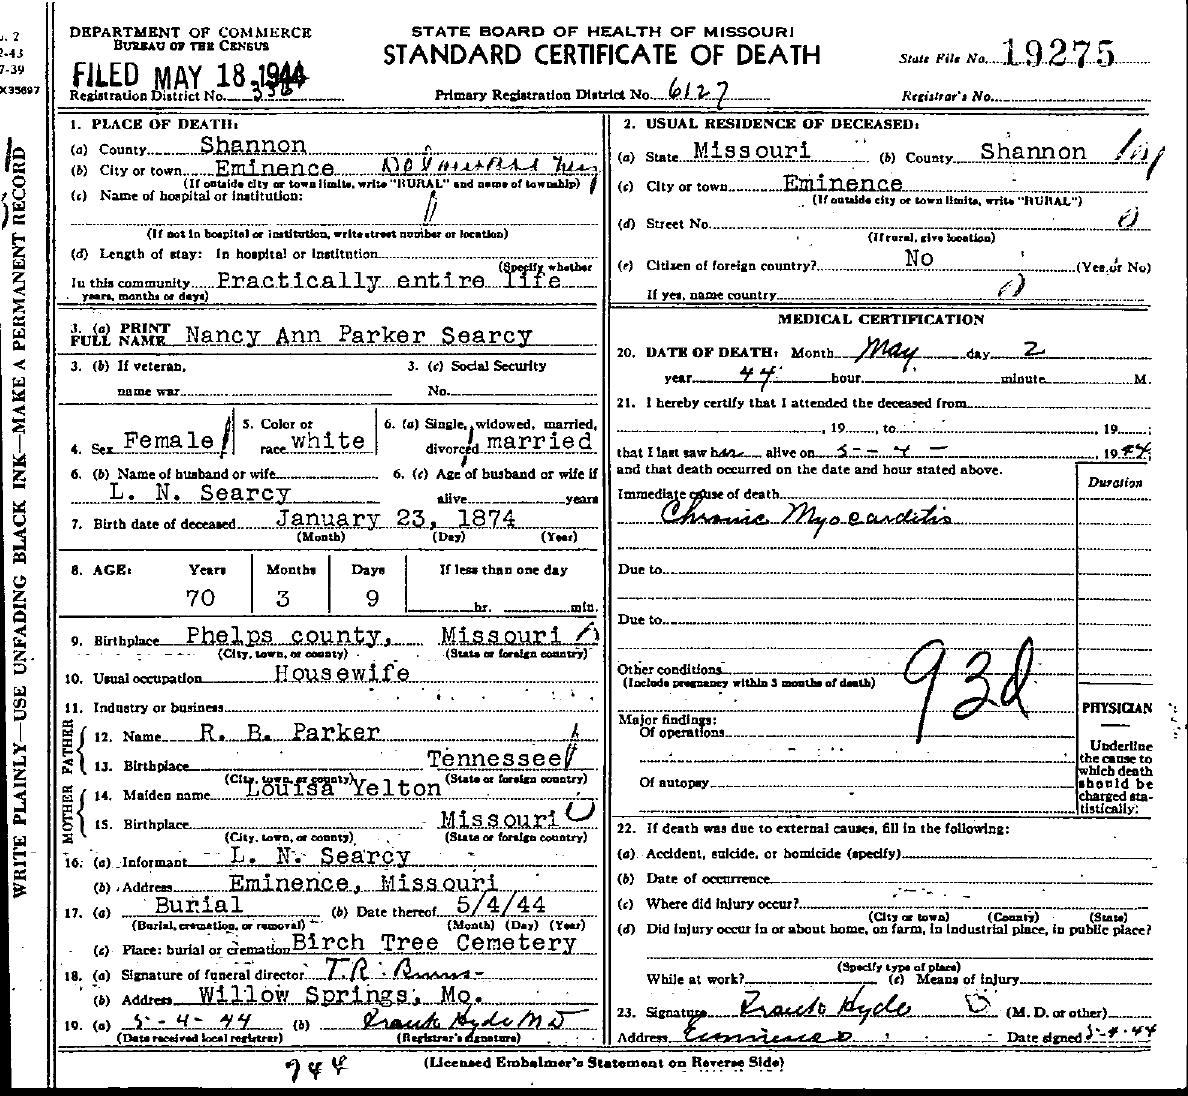 . 2
2-43
7-39
X35697
WRITE PLAINLY—USE UNFADING BLACK INK—MAKE A PERMANENT RECORD
DEPARTMENT OF COMMERCE
BUREAU OF THE CENSUS
FILED MAY 18 1944
Registration District No.
STATE BOARD OF HEALTH OF MISSOURI
STANDARD CERTIFICATE OF DEATH
Primary Registration District No. 6127
State File No. 19275
Registrar's No.
1. PLACE OF DEATH:
(a) County Shannon
(b) City or town Eminence
(If outside city or town limits, write "RURAL" and name of township)
(c) Name of hospital or institution:
(If not in hospital or institution, write street number or location)
(d) Length of stay: In hospital or institution
(Specify whether
In this community Practically entire life
years, months or days)
3. (a) PRINT FULL NAME Nancy Ann Parker Searcy
3. (b) If veteran,
name war
3. (c) Social Security
No.
4. Sex Female
5. Color or race white
6. (a) Single, widowed, married, divorced married
6. (b) Name of husband or wife
L. N. Searcy
6. (c) Age of husband or wife if
alive years
7. Birth date of deceased January 23, 1874
(Month) (Day) (Year)
8. AGE: Years Months Days If less than one day
70 3 9 hr. min.
9. Birthplace Phelps county, Missouri
(City, town, or county) (State or foreign country)
10. Usual occupation Housewife
11. Industry or business
FATHER
12. Name R. B. Parker
13. Birthplace Tennessee
(City, town, or county) (State or foreign country)
MOTHER
14. Maiden name Louisa Yelton
15. Birthplace Missouri
(City, town, or county) (State or foreign country)
16. (a) Informant L. N. Searcy
(b) Address Eminence, Missouri
17. (a) Burial (b) Date thereof 5/4/44
(Burial, cremation, or removal) (Month) (Day) (Year)
(c) Place: burial or cremation Birch Tree Cemetery
18. (a) Signature of funeral director T.R. Burns
(b) Address Willow Springs, Mo.
19. (a) 5-4-44 (b) Frank Hyde MD
(Date received local registrar) (Registrar's signature)
2. USUAL RESIDENCE OF DECEASED:
(a) State Missouri (b) County Shannon
(c) City or town Eminence
(If outside city or town limits, write "RURAL")
(d) Street No. 0
(If rural, give location)
(e) Citizen of foreign country? No (Yes or No)
If yes, name country 0
MEDICAL CERTIFICATION
20. DATE OF DEATH: Month May day 2
year 44 hour minute M.
21. I hereby certify that I attended the deceased from
, 19 , to , 19 ;
that I last saw her alive on 5-4- 1944;
and that death occurred on the date and hour stated above.
Duration
Immediate cause of death
Chronic Myocarditis
Due to
Due to
Other conditions
(Include pregnancy within 3 months of death)
93d
Major findings:
Of operations
Of autopsy
PHYSICIAN
Underline the cause to which death should be charged statistically:
22. If death was due to external causes, fill in the following:
(a) Accident, suicide, or homicide (specify)
(b) Date of occurrence
(c) Where did injury occur?
(City or town) (County) (State)
(d) Did injury occur in or about home, on farm, in industrial place, in public place?
(Specify type of place)
While at work? (e) Means of injury
23. Signature Frank Hyde (M. D. or other)
Address Eminence Date signed 5-4-44
944
(Licensed Embalmer's Statement on Reverse Side)